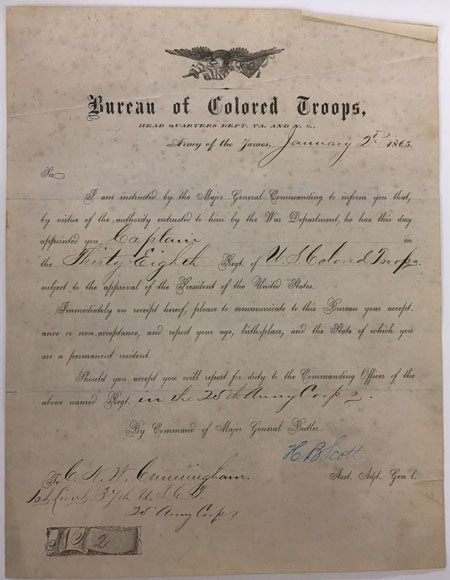 Bureau of Colored Troops,
HEAD QUARTERS DEPT. VA. AND N. C.,
Army of the James, January 2d 1865.
Sir
I am instructed by the Major General Commanding to inform you that,
by virtue of the authority entrusted to him by the War Department, he has this day
appointed you Captain in
the Thirty Eighth Regt. of U S Colored Troops
subject to the approval of the President of the United States.
Immediately on receipt hereof, please to communicate to this Bureau your accept-
ance or non-acceptance, and report your age, birthplace, and the State of which you
are a permanent resident.
Should you accept you will report for duty to the Commanding Officer of the
above named Regt. in the 25th Army Corps.
By Command of Major General Butler
H B Scott
To C. K. W. Cunningham. Asst. Adjt. Gen'l.
1st Lieut. 37th U. S. C. T.
25th Army Corps
No 2